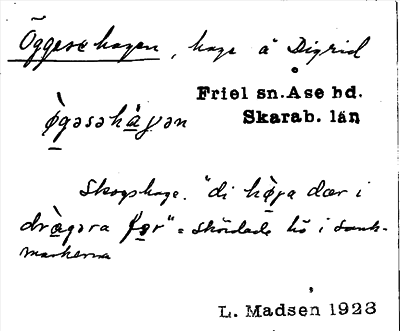 Öggesehagen, hage å Digrid
Friel sn. Åse hd.
Skarab. län
ò̱gəsəhà̱γən
Skogshage. "di hø̱ga dær i
drà̱gəra fø̱r" = skördade hö i sank-
markerna
L. Madsen 1923